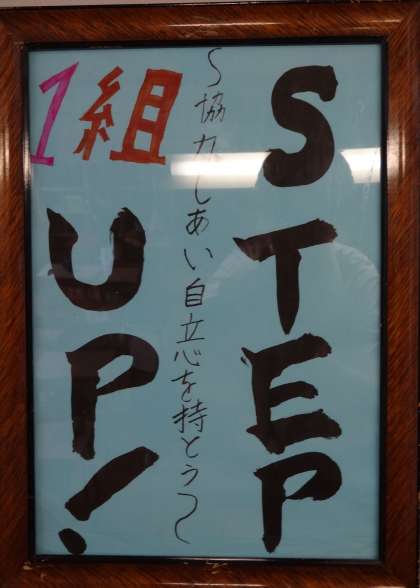 1組
STEP
~協力しあい自立心を持とう~
UP!